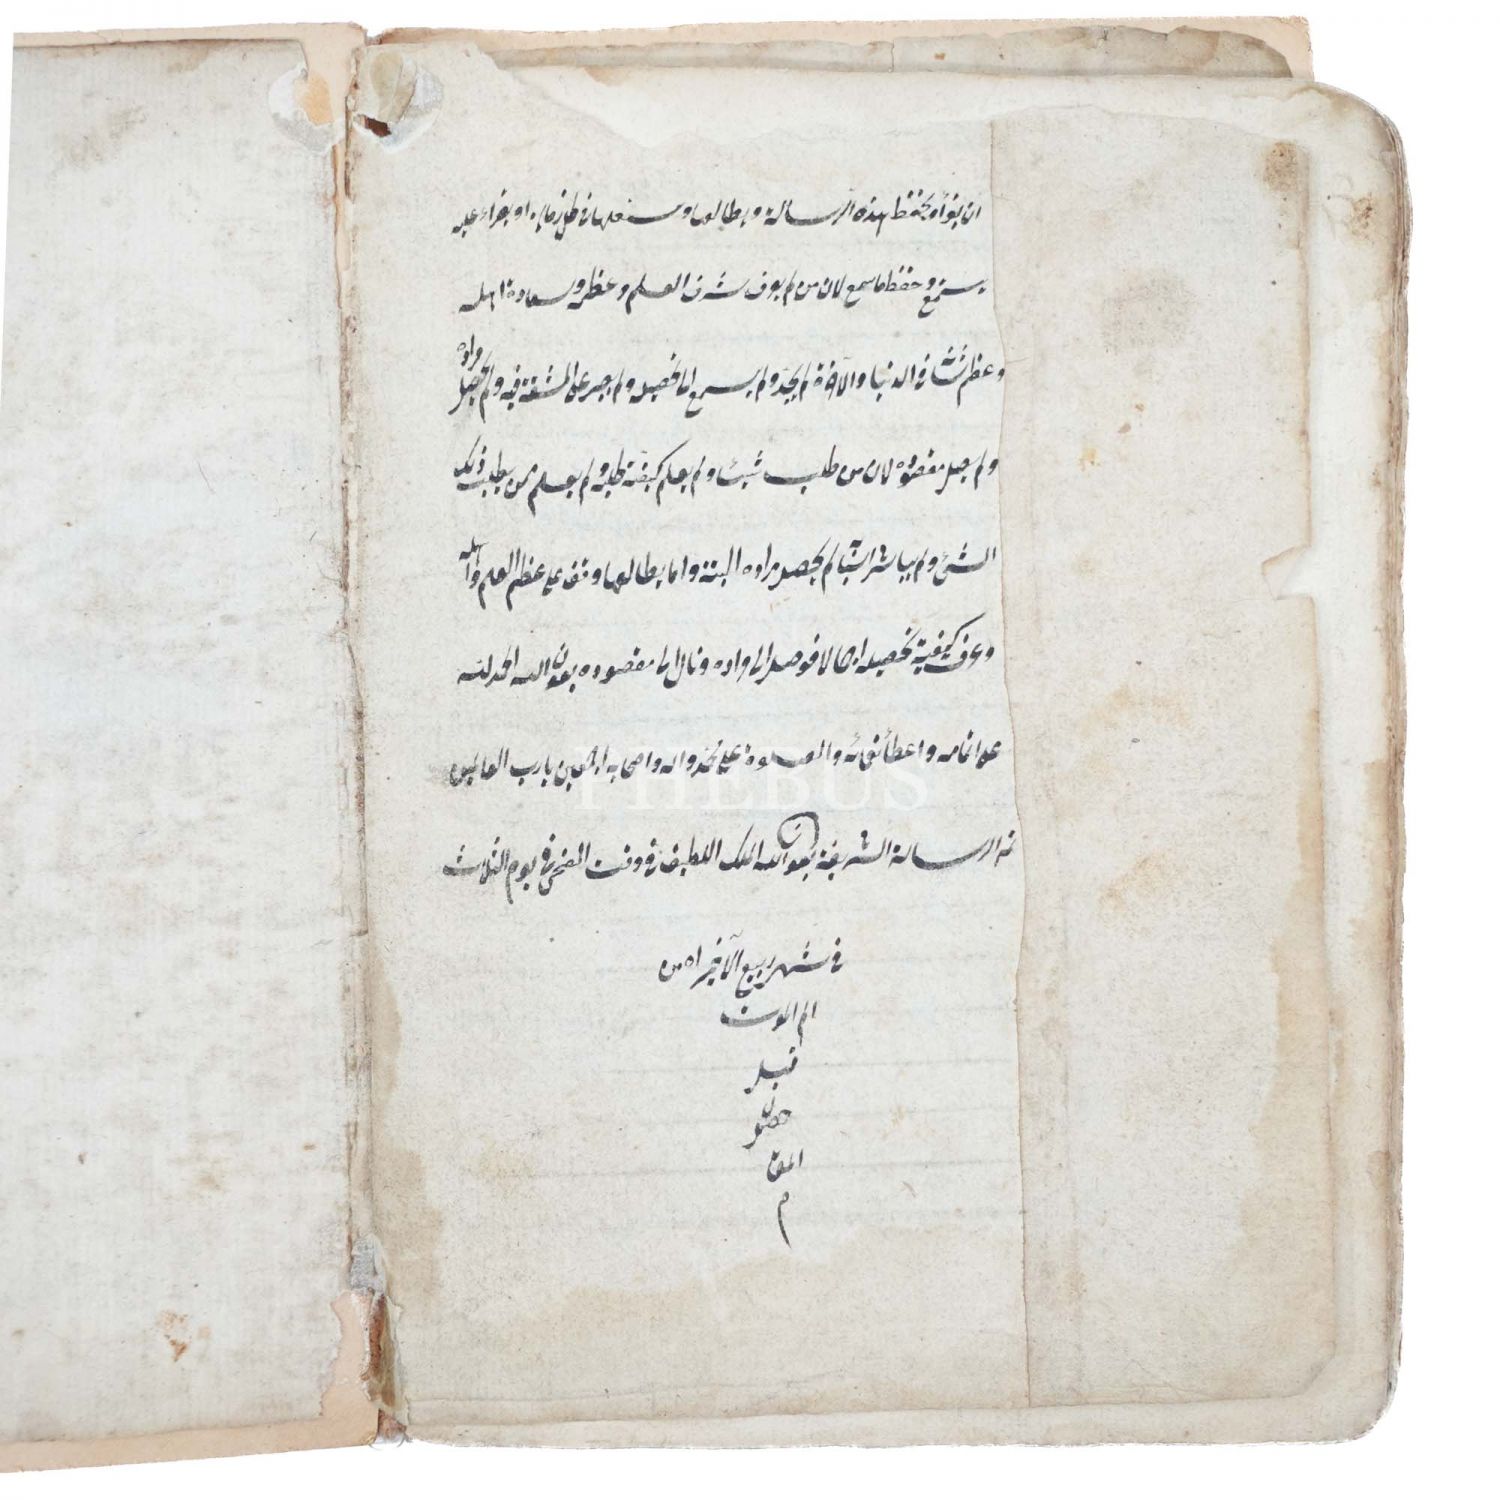 ان يقرأ ويحفظ هذه الرسالة ويطالعها و في او يقراء عليه
يستمع وحفظ ما سمع لان من لم يعرف شرف العلم وعظمه وسعادة اهله
وعظم شانه في الدنيا والآخرة لم يجد ولم يسرع الى تحصيله ولم يصبر على المشقة فيه ولم يحصل مراده
ولم يصل مقصوده لان من طلب شيئا ولم يعلم كيفية طلبه ولم يعلم ممن يطلب ذلك
الشئ ولم يباشر اسبابه لم يحصل مراده البتة واما يطالعها وقف على عظم العلم واهله
وعرف كيفية تحصيله اجمالا فوصل الى مراده ونال الى مقصوده بعون الله الحمد لله
على اتمامه واعطأ نعمائه والصلوة على محمد واله واصحابه اجمعين يا رب العالمين
تمه الرسالة الشريفة بعون الله الملك اللطيف في وقت الضحى في يوم الثلاث
في شهر ربيع الآخر
الموت
قبل
الموت
م
THEBUS